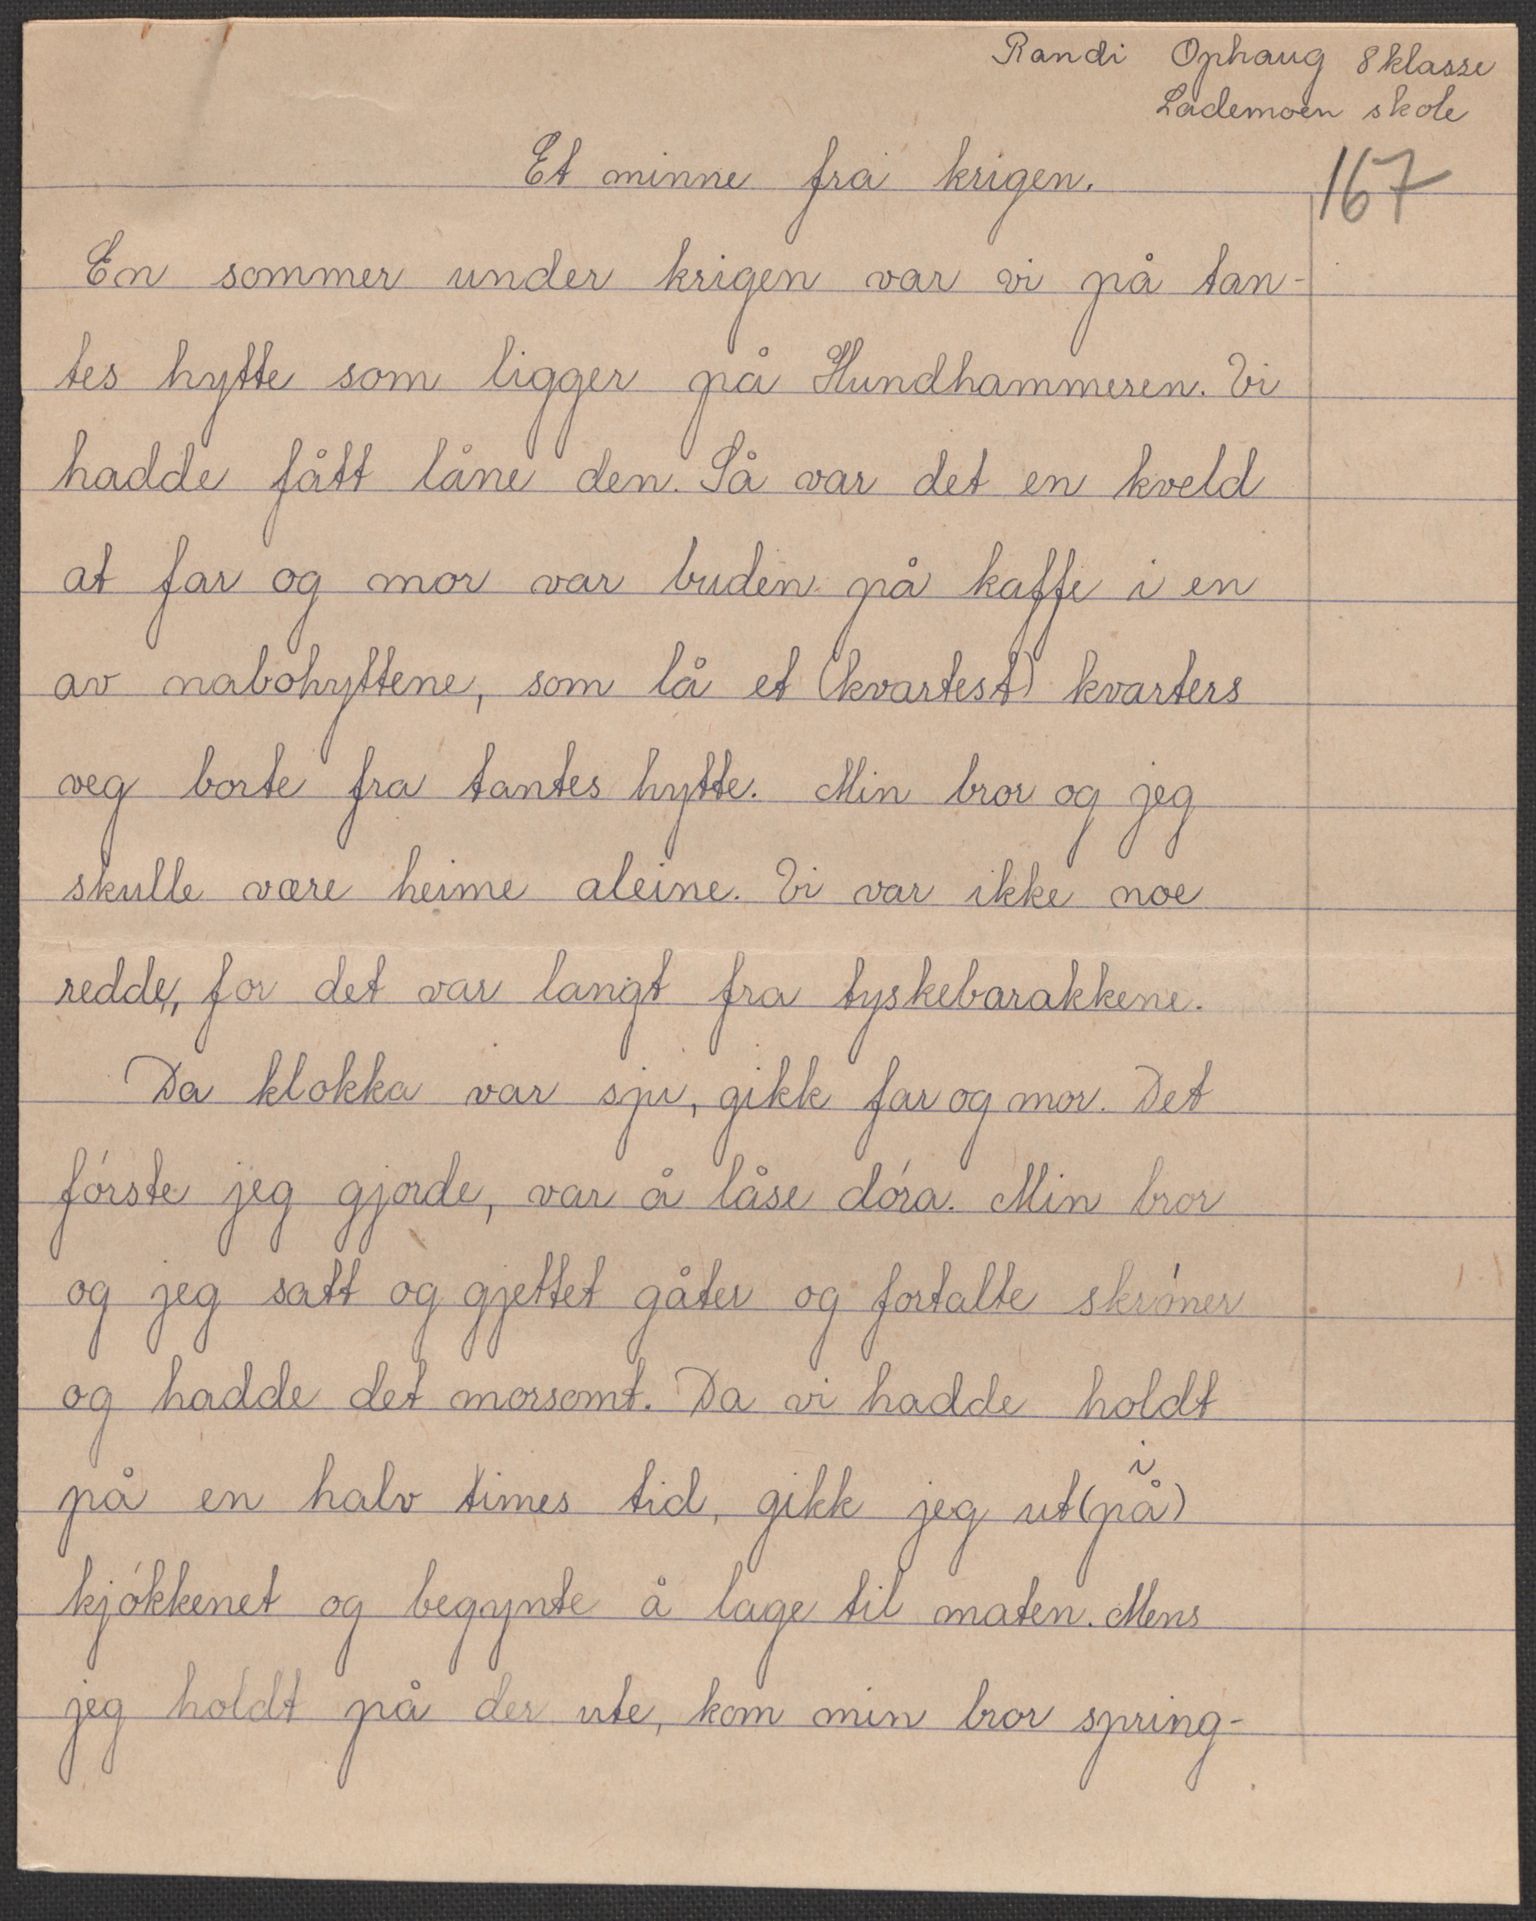 Randi Ophaug 8 klasse
Lademoen skole
Et minne fra krigen.
167
En sommer under krigen var vi på tan-
tes hytte som ligger på Hundhammeren. Vi
hadde fått låne den. Så var det en kveld
at far og mor var buden på kaffe i en
av nabohyttene, som lå et (kvartest) kvarters
veg borte fra tantes hytte. Min bror og jeg
skulle være heime aleine. Vi var ikke noe
redde, for det var langt fra tyskebarakkene.
Da klokka var sju, gikk far og mor. Det
første jeg gjorde, var å låse døra. Min bror
og jeg satt og gjettet gåter og fortalte skrøner
og hadde det morsomt. Da vi hadde holdt
på en halv times tid, gikk jeg ut (på) i
kjøkkenet og begynte å lage til maten. Mens
jeg holdt på der ute, kom min bror spring-